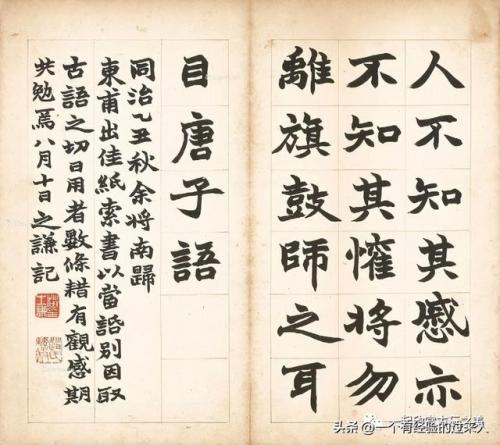 人不知其慼亦
不知其懽將勿
離旗鼓師之耳
目唐子語
同治乙丑秋余將南歸
東甫出佳紙索書以當話別因取
古語之切日用者數條耤有觀感期
共勉焉八月十日之謙記
头条 @一个有经验的过来人